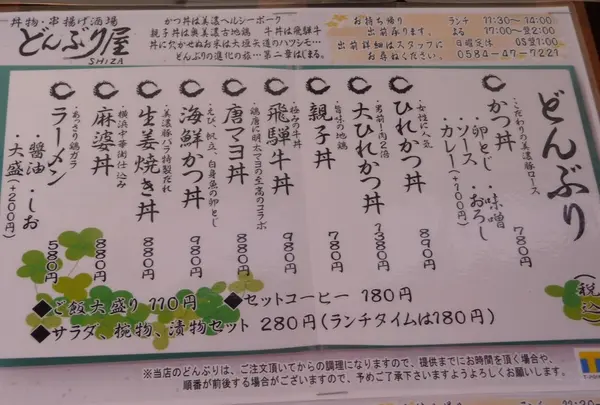 丼物・串揚げ酒場
どんぶり屋
SHIZA
かつ丼は美濃ヘルシーポーク
親子丼は奥美濃古地鶏 牛丼は飛騨牛
丼に欠かせぬお米は大垣矢道のハツシモ…
どんぶりの進化の旅…第二章はじまる。
お持ち帰り
出前承ります。
出前詳細はスタッフに
お尋ねください。
ランチ 11:30～14:00
よる 17:00～翌2:00
日曜定休 OS翌1:00
0584-47-7221
どんぶり
(税込
かつ丼
・こだわりの美濃豚ロース
・卵とじ ・味噌
・ソース ・おろし
・カレー(+100円)
780円
ひれかつ丼
・女性に人気
890円
大ひれかつ丼
・男前!肉2倍
1380円
親子丼
・旨味の地鶏
780円
飛騨牛丼
・極みの牛丼
980円
唐マヨ丼
・鶏唐に明太マヨの至高のコラボ
880円
海鮮かつ丼
・えび、帆立、白身魚の卵とじ
980円
生姜焼き丼
・美濃豚バラ特製だれ
880円
麻婆丼
・横浜中華街仕込み
880円
ラーメン
・あっさり鶏ガラ
・醤油 ・しお
・大盛(+200円)
580円
◆ご飯大盛り 110円
◆セットコーヒー 180円
◆サラダ、椀物、漬物セット 280円(ランチタイムは180円)
※当店のどんぶりは、ご注文頂いてからの調理になりますので、提供までにお時間を頂く場合や、
順番が前後する場合がございますので、予めご了承下さいますようよろしくお願いします。